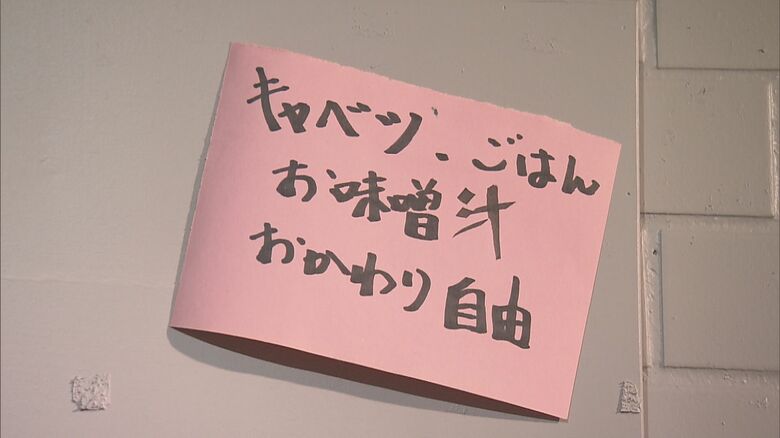 キャベツ、ごはん
お味噌汁
おかわり自由